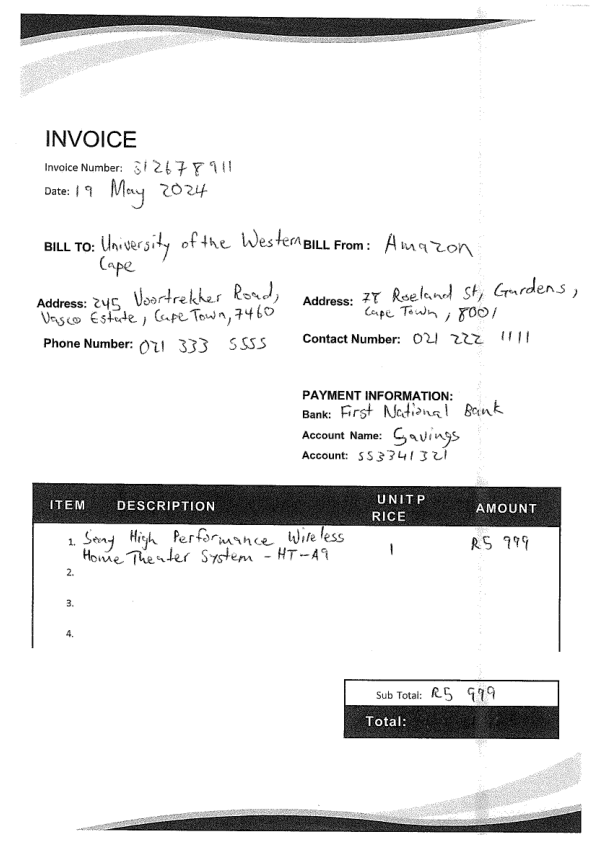 INVOICE
Invoice Number: 312678911
Date: 19 May 2024
BILL TO: University of the Western
Cape
BILL From: Amazon
Address: 245 Voortrekker Road,
Vasco Estate, Cape Town, 7460
Address: 78 Roseland St, Gardens,
Cape Town, 8001
Phone Number: 021 333 5555
Contact Number: 021 222 1111
PAYMENT INFORMATION:
Bank: First National Bank
Account Name: Savings
Account: 553341321
ITEM DESCRIPTION UNITP
RICE AMOUNT
1. Sony High Performance Wireless
Home Theater System - HT-A9 1 R5 999
2.
3.
4.
Sub Total: R5 999
Total: